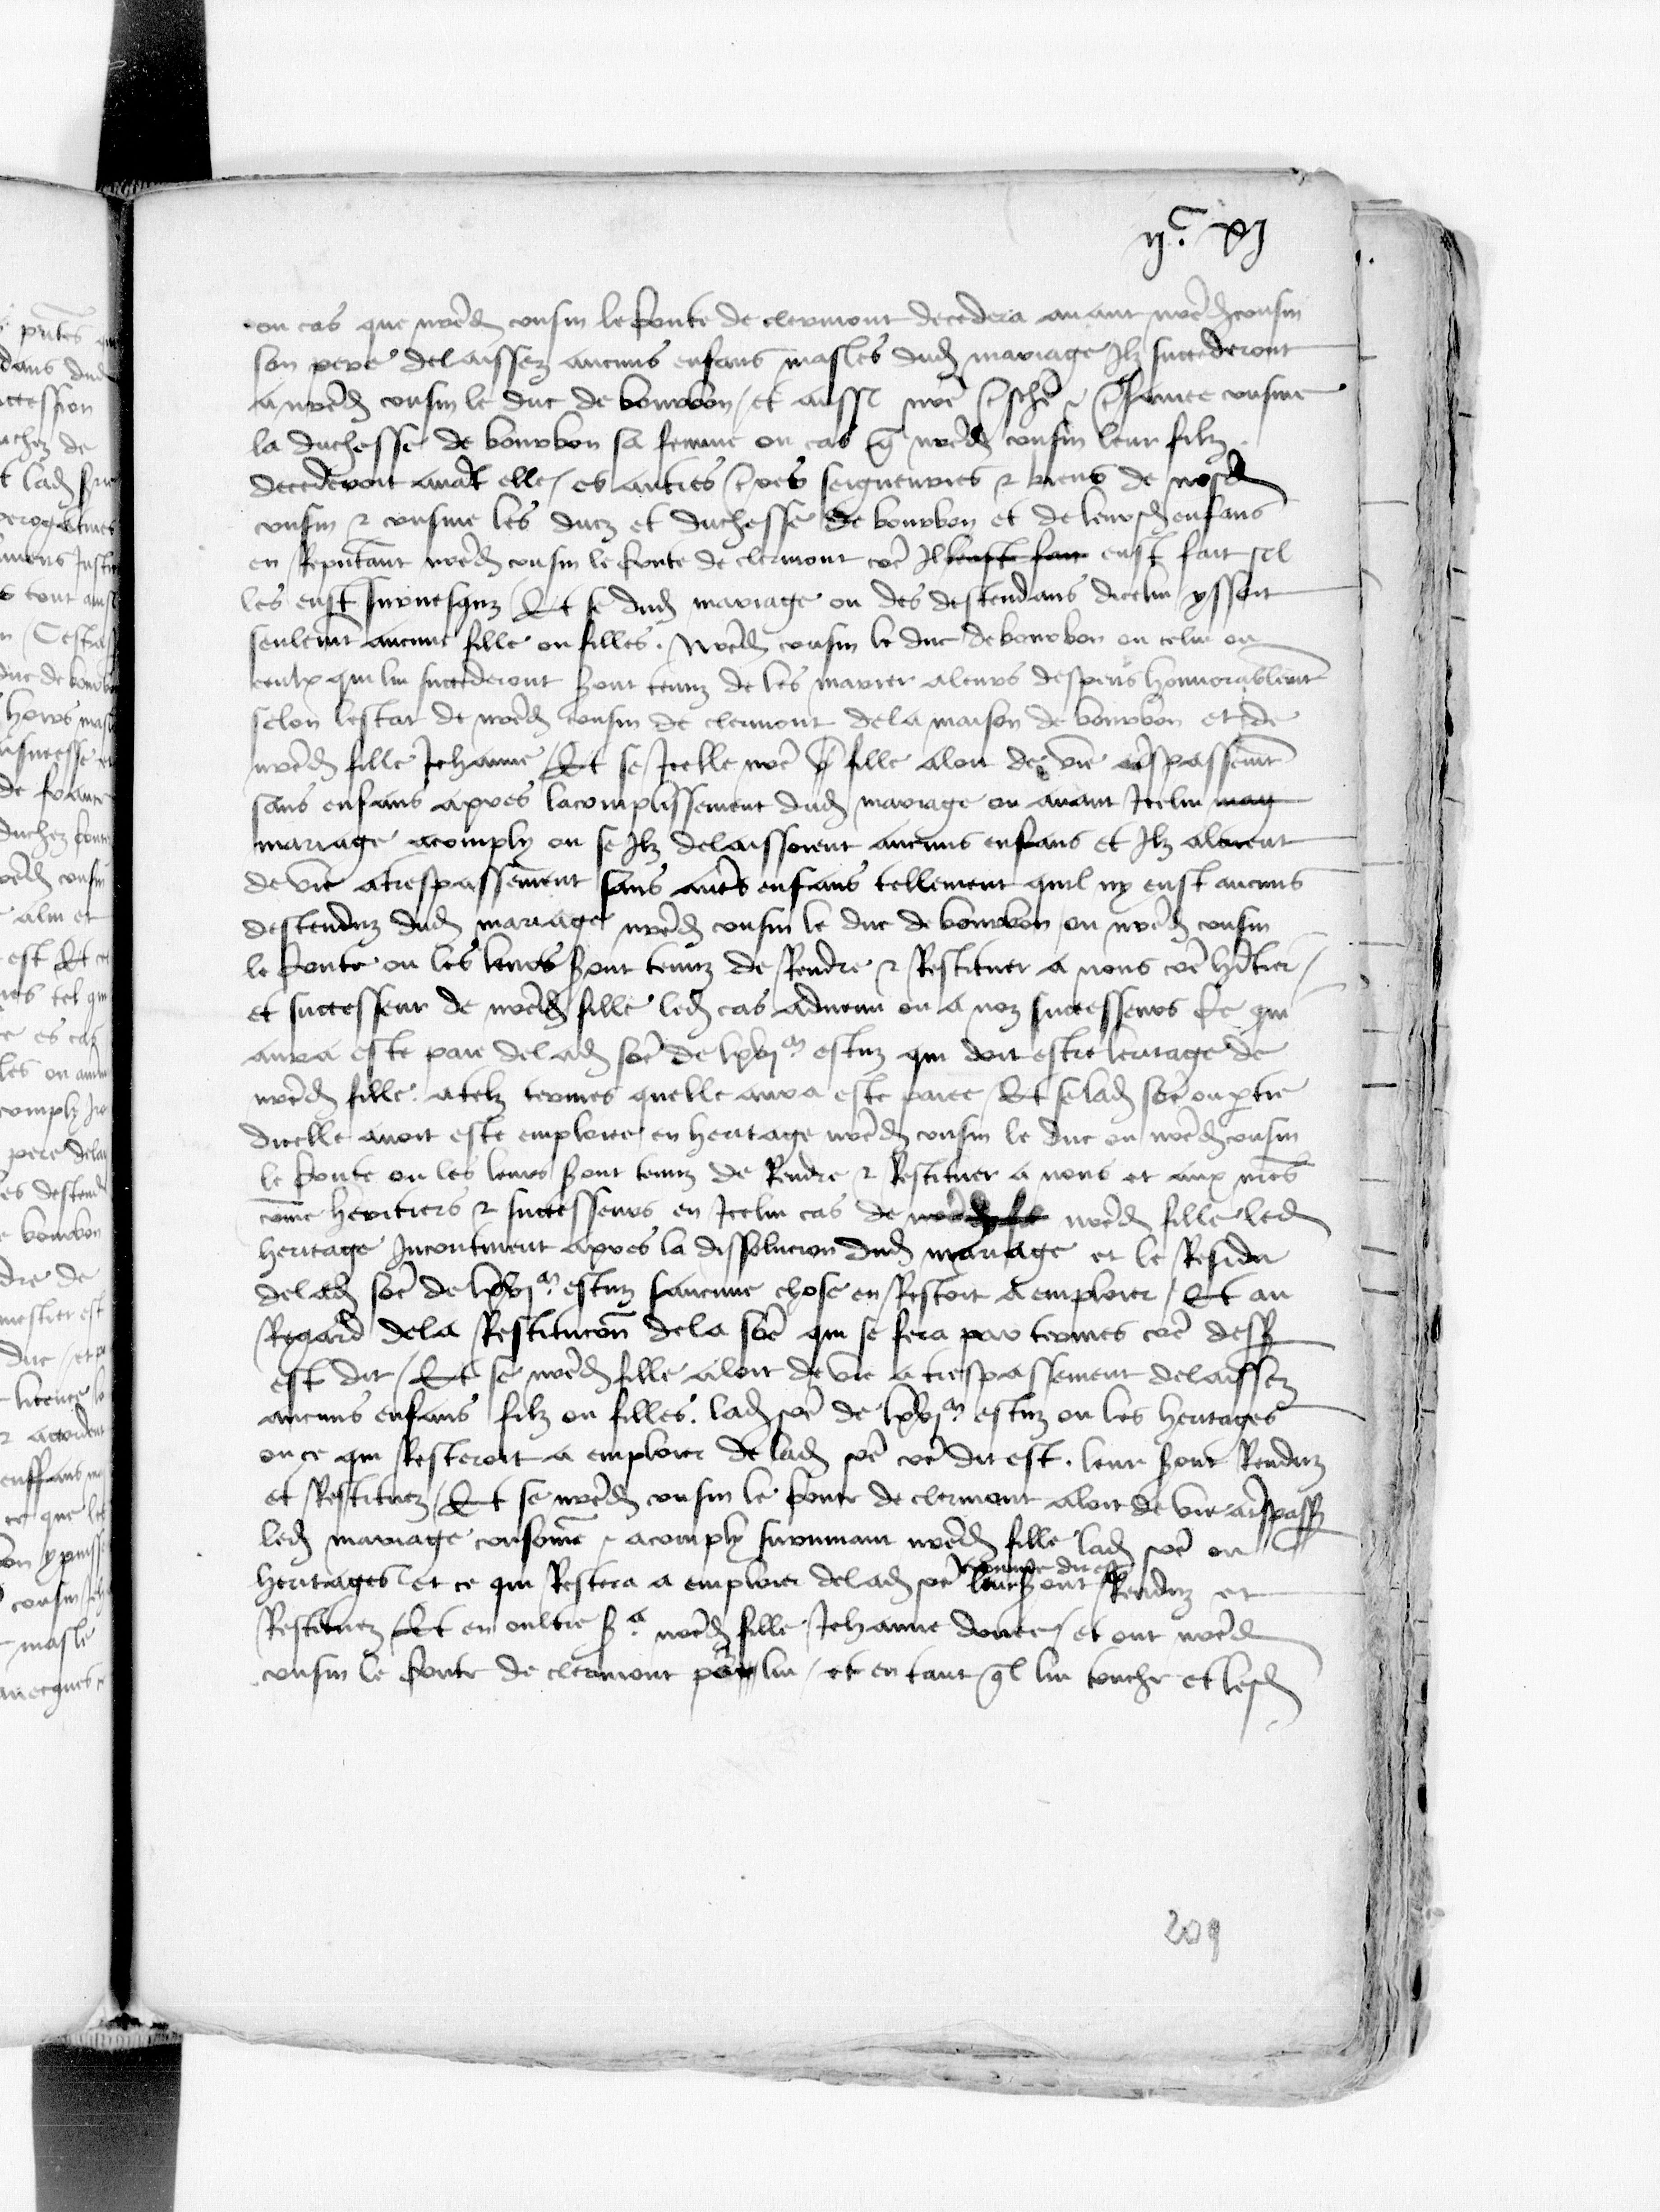 ijc xj
ou cas que nred cousin le conte de clermont decedera auant nred cousin
son pere delaissez aucuns enfans masles dud mariage Ilz succederont
a nred cousin le duc de bourbon / et aussi nre &amee cousine
la duchesse de bourbon sa femme ou cas q nred cousin leur filz
decederoit auat elle / es autres seigneuries & biens de nosd
cousin & cousine les ducz et duchesse de bourbon et de leursd enfans
en Reputant nred cousin le conte de clermont coe Il eust fait eust fait sil
les eust suruesquz / Et se dud mariage ou des descendans dicelui yssoit
seulemt aucune fille ou filles. nred cousin le duc de bourbon ou celui ou
ceulx qui lui succederont seront tenuz de les marier a leurs despens honnorablemt
selon lestat de nred cousin de clermont de la maison de bourbon et de
nred fille Jehanne / Et se Icelle nre fille aloit de vie a trespassemt
sans enfans apres lacomplissement dud mariage ou auant Icelui mag
mariage acomply ou se Ilz delaissoient aucuns enfans et Ilz aloient
de vie a trespassement sans autres enfans tellement quil ny eust aucuns
descenduz dud mariage nred cousin le duc de bourbon / ou nred cousin
le conte ou les leurs seront tenuz de Rendre & Restituer a nous coe heritier /
et successeur de nred fille led cas aduenu ou a noz successeurs Ce qui
aura este paie de lad soe de lxvjm escuz qui doit estre leritage de
nred fille. a telz termes quelle aura este paiee / Et se lad soe ou ptie
dicelle auoit este emploiee en heritage nred cousin le duc ou nred cousin
le conte ou les leurs seront tenuz de Rendre & Restituer a nous et aux nres
come heritiers & successeurs en Icelui cas de nred fi nred fille led
heritage Incontinent apres la dissolucion dud mariage et le Residu
de lad soe de lxvjm escuz saucune chose en Restoit a emploier / Et au
Regard de la Restitucion de la soe qui se fera par termes coe dess
est dit / Et se nred fille aloit de vie a trespassement delaissez
aucuns enfans filz ou filles. lad soe de lxvjm escuz ou les heritages
ou ce qui Resteroit a emploier de lad soe coe dit est. leur seront Renduz
et Restituez / Et se nred cousin le conte de clermont aloit de vie a trespass
led mariage consome & acomply suruiuant nred fille lad soe ou
heritages et ce qui Restera a emploier de lad soe comme dit est leur seront Renduz et
Restituez / Et en oultre sera nred fille Jehanne douee / et ont nred
cousin le conte de clermont pour lui / et en tant ql lui touche et lesd
209